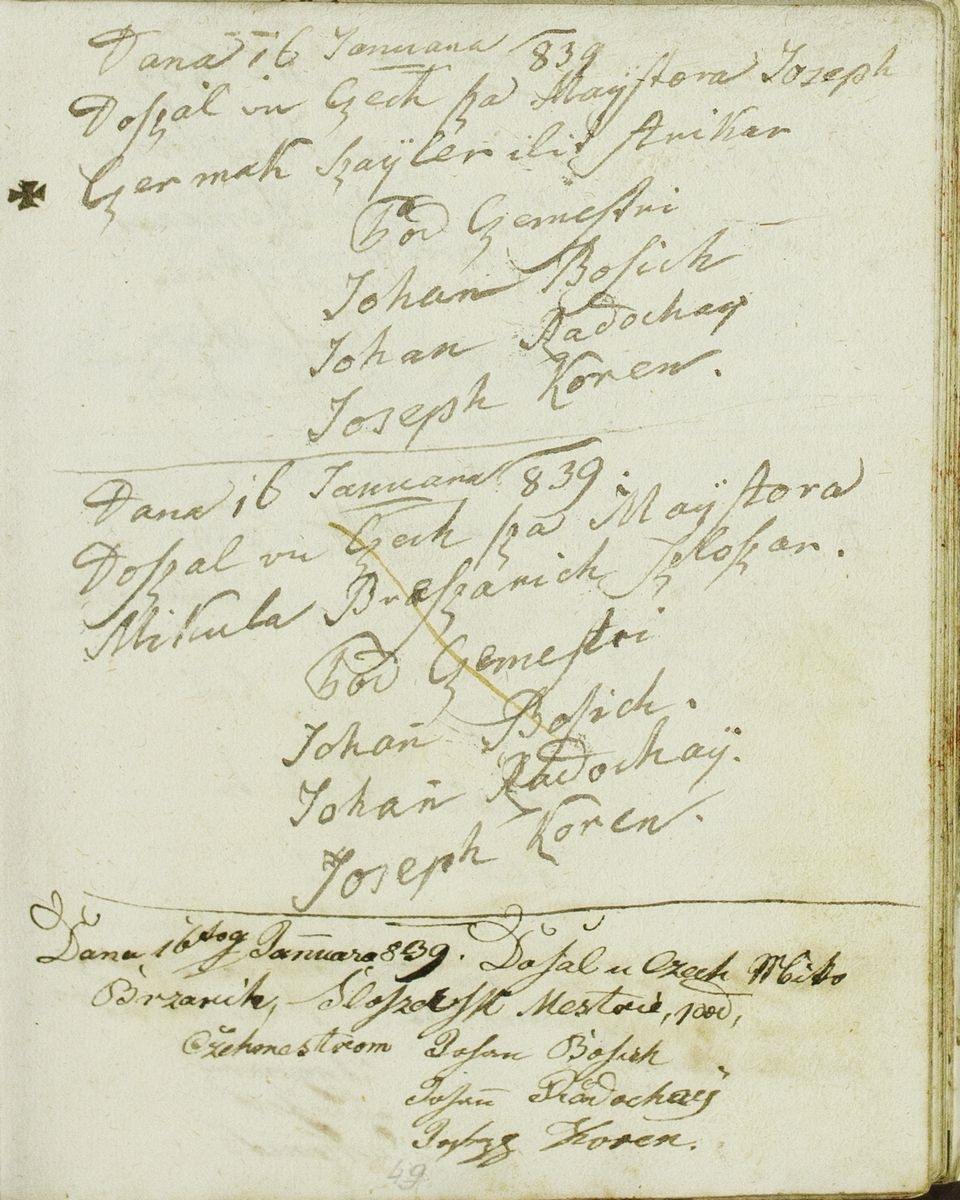 Dana 16 Januara 839
Doszal vu Czech za Maystora Joseph
Czermak szayler iliz strikar
Pod Czemestri
Johan Bosich
Johan Radochay
Joseph Koren.
Dana 16 Januara 839.
Doszal vu Czech za Maystora
Mikula Breszarich Szloszar.
Pod Czemestri
Johan̄ Bosich.
Johan̄ Radochaÿ.
Joseph Koren.
Dana 16tog Januara 839. Dosal u Czech Miko
Brzarich, Sloszersk Mestrie, pod,
Czehmestrom Johan Bosich
Johan̄ Radochaÿ
Koren.
49